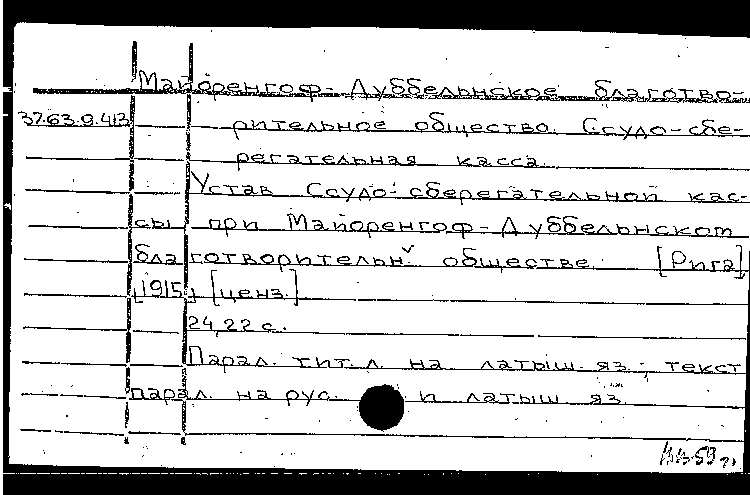 Майоренгоф-Дуббельнское благотво-
37.63.9.413 рительное общество. Ссудо-сбе-
регательная касса.
Устав Ссудо-сберегательной кас-
сы при Майоренгоф-Дуббельнском
благотворительн. обществе. [Рига],
[1915] [ценз.]
24, 22 с.
Парал. тит. л. на латыш. яз.; текст
парал. на рус. и латыш. яз.